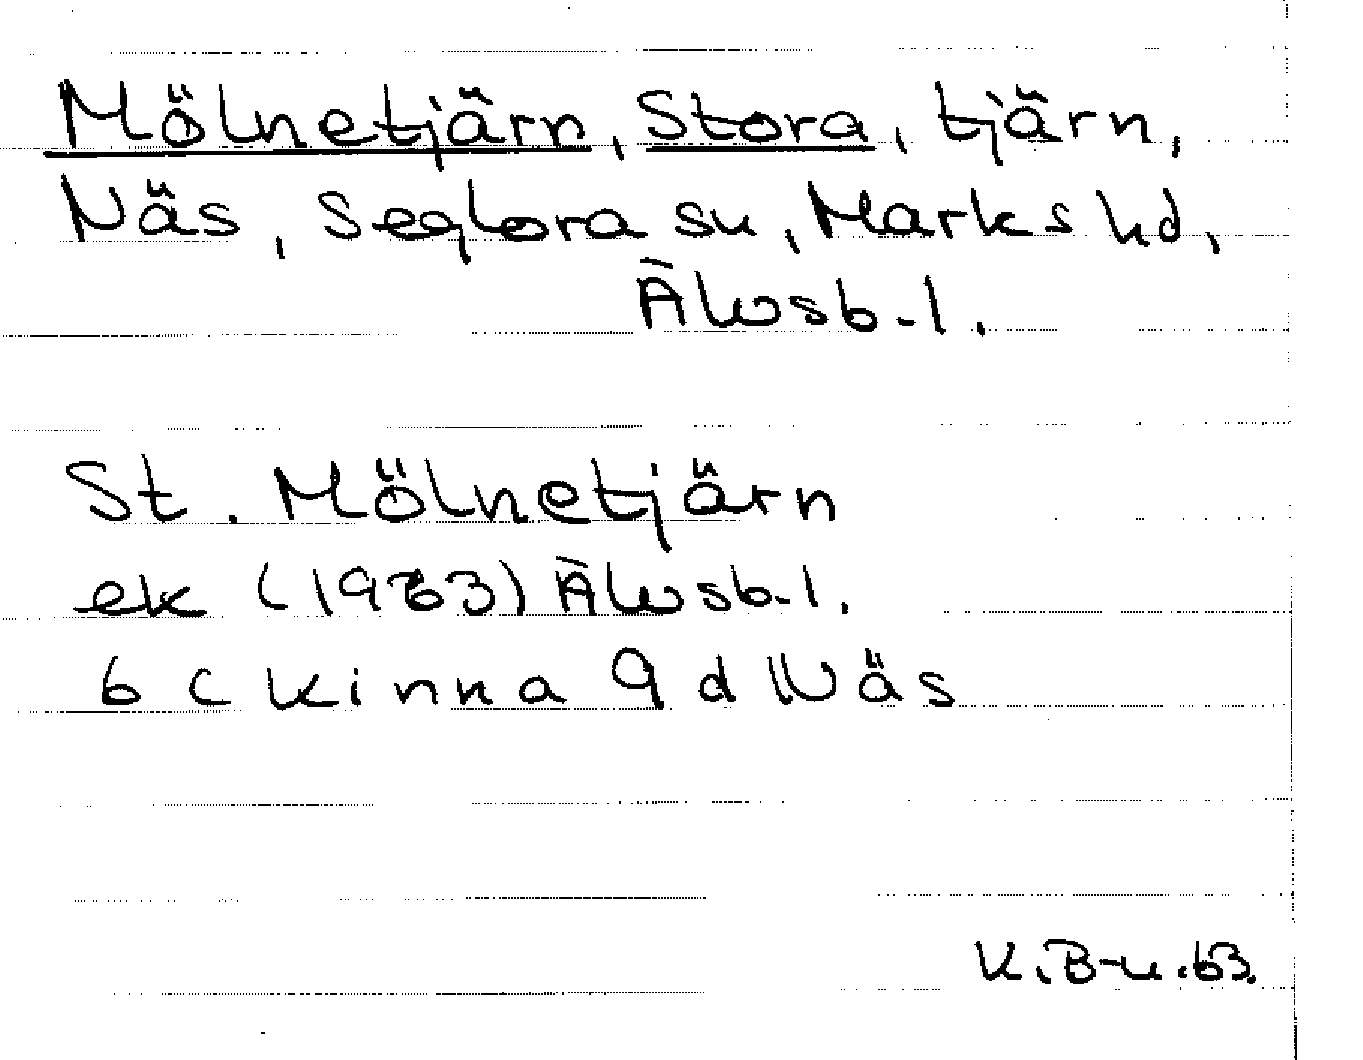 Mölnetjärn, Stora, tjärn,
Näs, Seglora sn, Marks hd,
Älvsb.l.
St. Mölnetjärn
ek (1963) Älvsb.l.
6 c Kinna 9 d Näs
K.B-n.63.